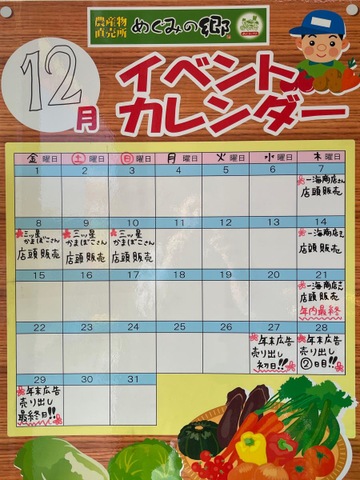 農産物
直売所
めぐみの郷
12月
イベント
カレンダー
金曜日 土曜日 日曜日 月曜日 火曜日 水曜日 木曜日
1 2 3 4 5 6 7
一海商店さん
店頭販売
8 9 10 11 12 13 14
三ツ星
かまぼこさん
店頭販売
三ツ星
かまぼこさん
店頭販売
三ツ星
かまぼこさん
店頭販売
一海商店さん
店頭販売
15 16 17 18 19 20 21
一海商店さん
店頭販売
年内最終
22 23 24 25 26 27 28
年末広告
売り出し
初日!!
年末広告
売り出し
②日目!!
29 30 31
年末広告
売り出し
最終日!!